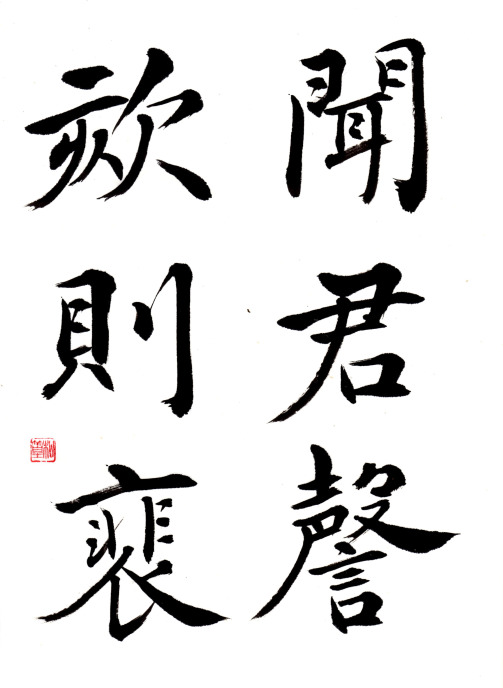 聞君謦
欬則裵